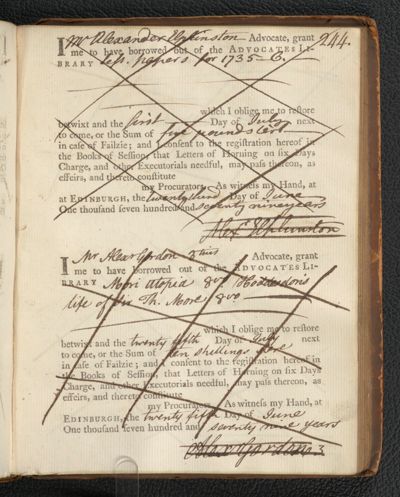 244.
I Mr Alexander Elphinston Advocate, grant
me to have borrowed out of the ADVOCATES LI-
BRARY Sess. papers for 1735-6.
which I oblige me to reſtore
betwixt and the first Day of July next
to come, or the Sum of five pounds Sterl
in caſe of Failzie; and I conſent to the regiſtration hereof in
the Books of Seſſion, that Letters of Horning on ſix Days
Charge, and other Executorials needful, may paſs thereon, as
effeirs, and thereto conſtitute
my Procurators. As witneſs my Hand, at
at EDINBURGH, the twenty third Day of June
One thouſand ſeven hundred and seventy nine years
Alexr Elphinston
I Mr Alexr Gordon 3tius Advocate, grant
me to have borrowed out of the ADVOCATES LI-
BRARY Mori utopia 8vo Hoddesdon's
life of Sir Th. More 8vo
which I oblige me to reſtore
betwixt and the twenty fifth Day of July next
to come, or the Sum of ten shillings
in caſe of Failzie; and I conſent to the regiſtration hereof in
the Books of Seſſion, that Letters of Horning on ſix Days
Charge, and other Executorials needful, may paſs thereon, as
effeirs, and thereto conſtitute
my Procurators. As witneſs my Hand, at
EDINBURGH, the twenty fifth Day of June
One thouſand ſeven hundred and seventy nine years
Alexr Gordon 3